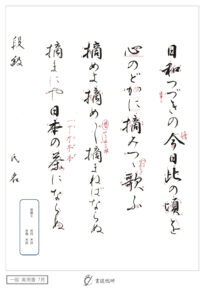 日和つづきの今日此の頃を
心のどかに摘みつつ歌ふ
摘めよ摘めし摘まねばならぬ
摘まにや日本の茶にならぬ
段級
氏名